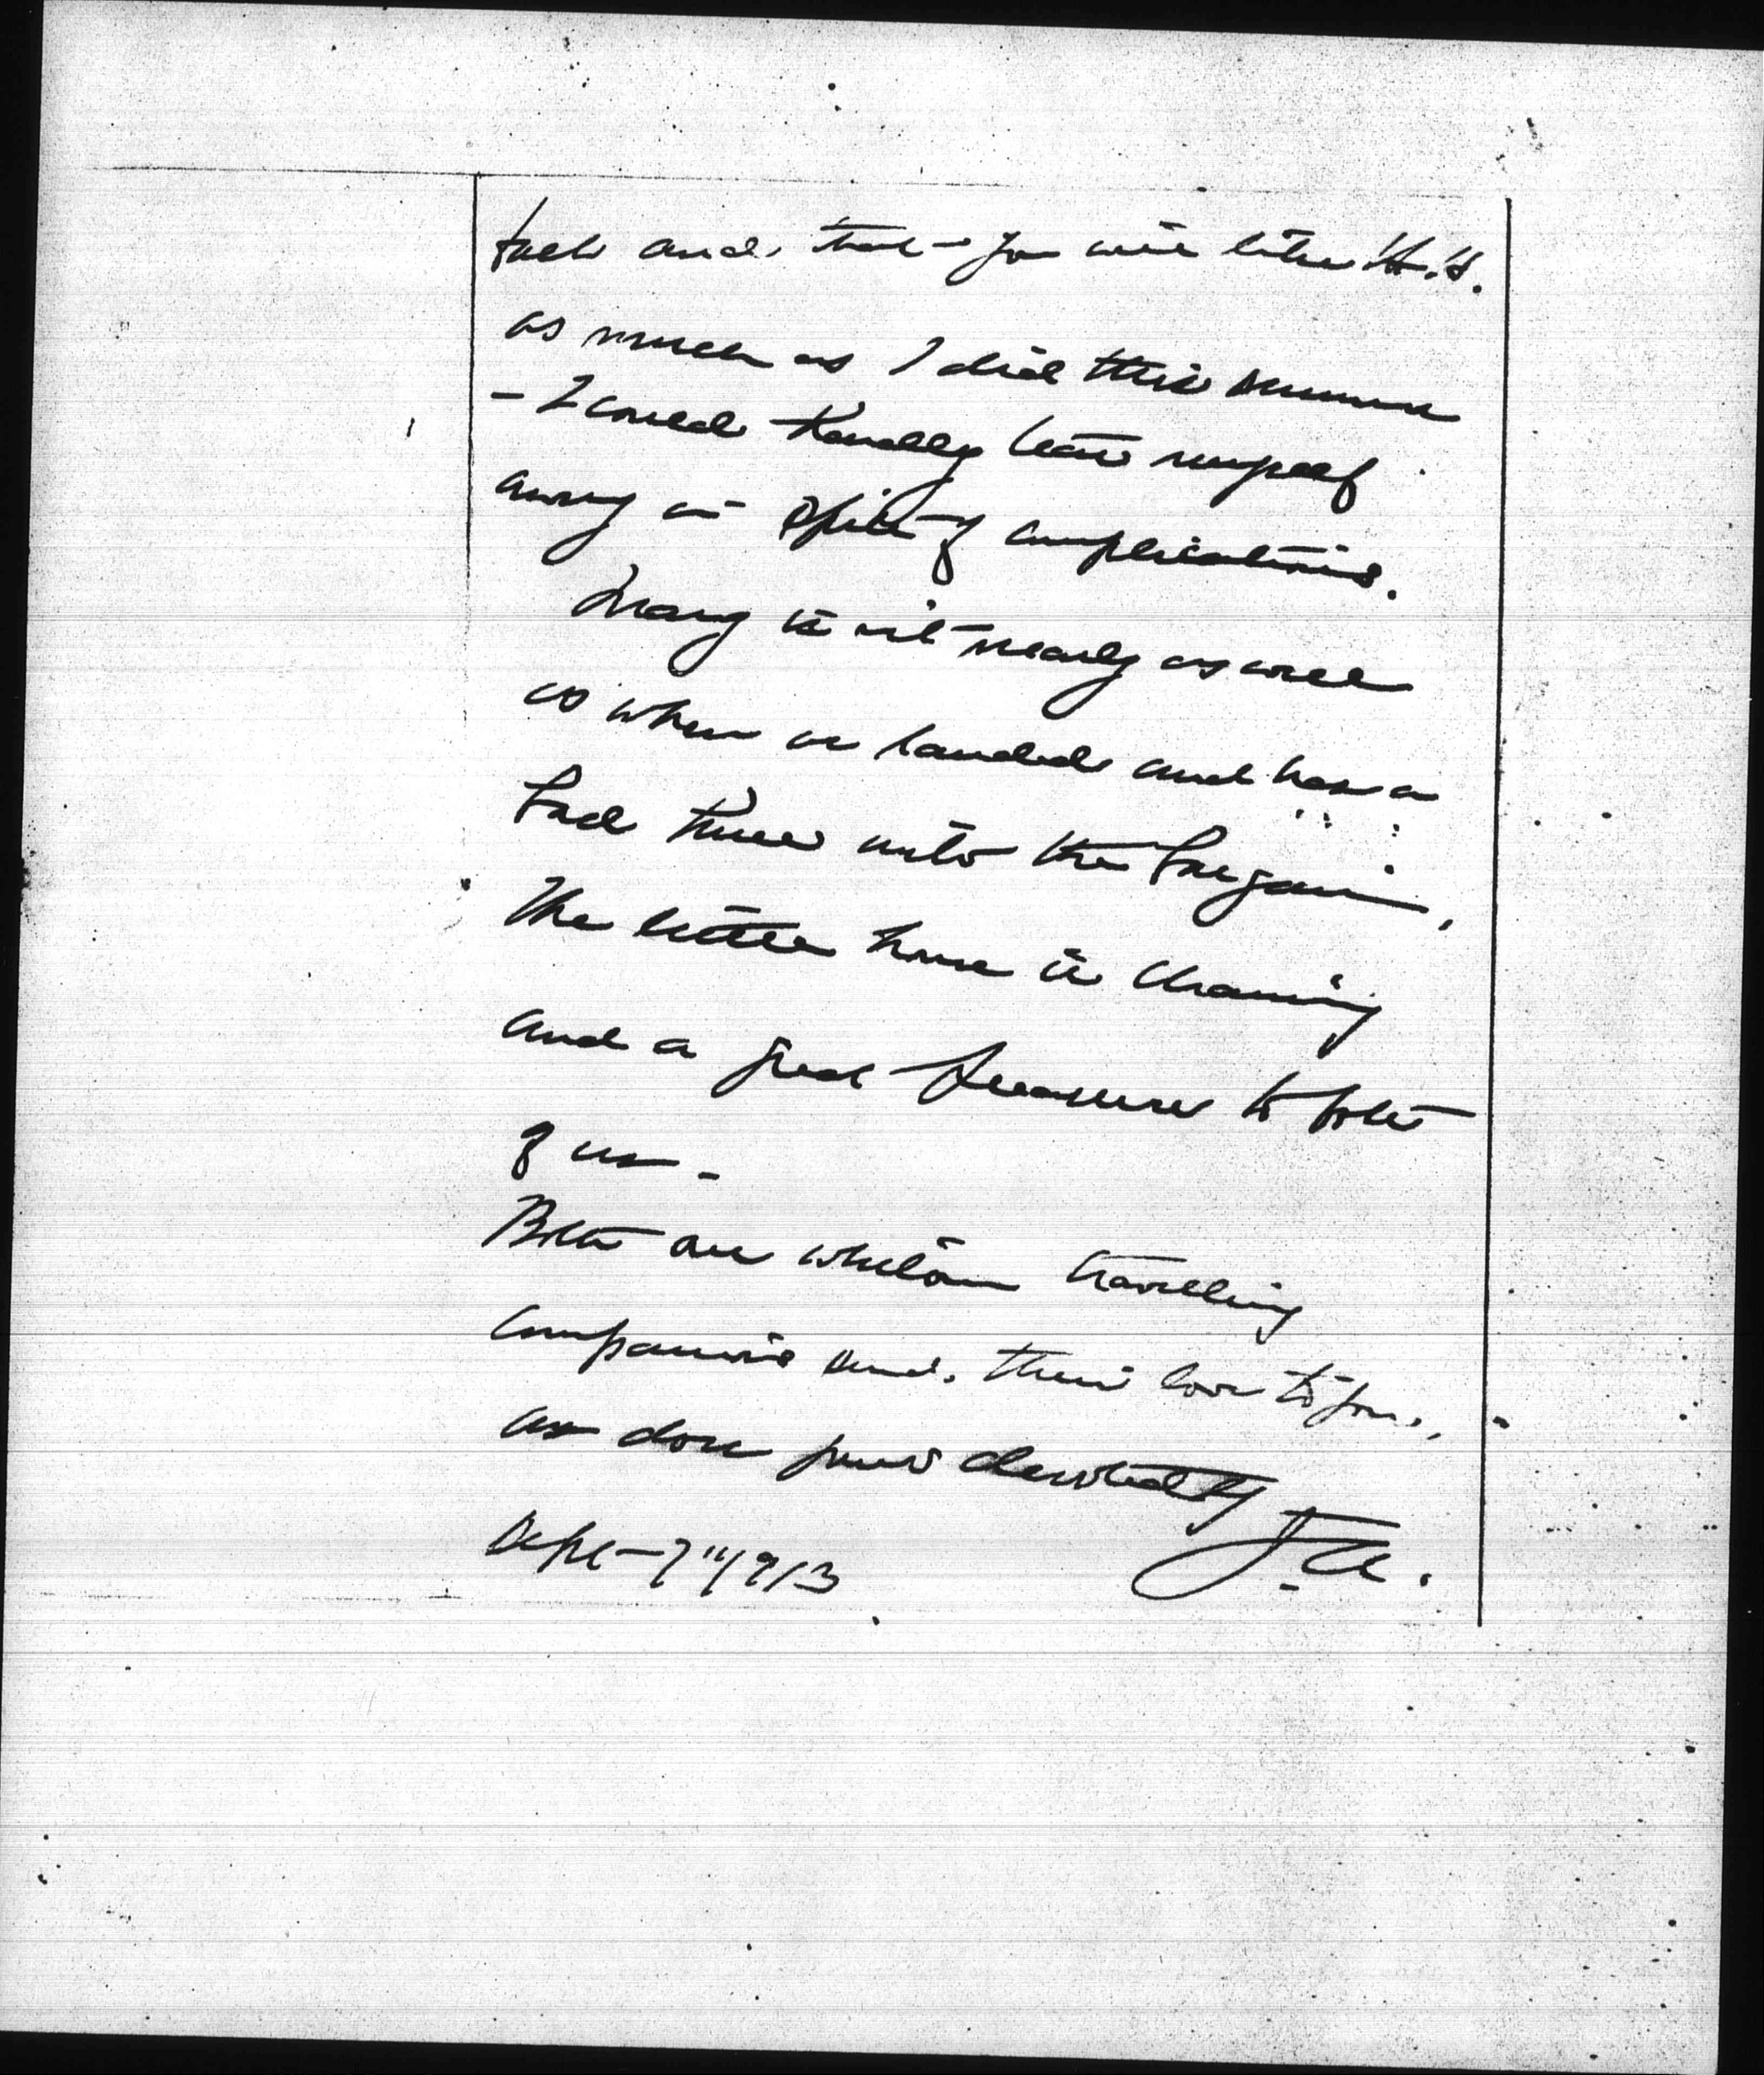 back and that you will like H.H.
as much as I did this summer
- I could hardly tear myself
away in spite of complications.
Mary is not nearly as well
as when we landed and has a
bad knee into the bargain,
The little house is charming
and a great pleasure to both
of us -
Both our whilom travelling
companions send their love to you,
as does yours devotedly
J.A.
Sept - 7" 1913